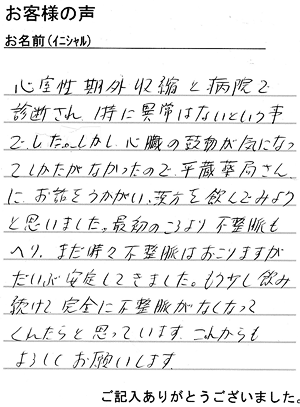 お客様の声
お名前(イニシャル)
心室性期外収縮と病院で
診断され、特に異常はないという事
でした。しかし、心臓の鼓動が気になっ
てしかたがなかったので、平蔵薬局さん
に、お話をうかがい、漢方を飲んでみよう
と思いました。最初のころより不整脈も
へり、まだ時々不整脈はおこりますが
だいぶ安定してきました。もう少し飲み
続けて完全に不整脈がなくなって
くれたらと思っています。これからも
よろしくお願いします。
ご記入ありがとうございました。